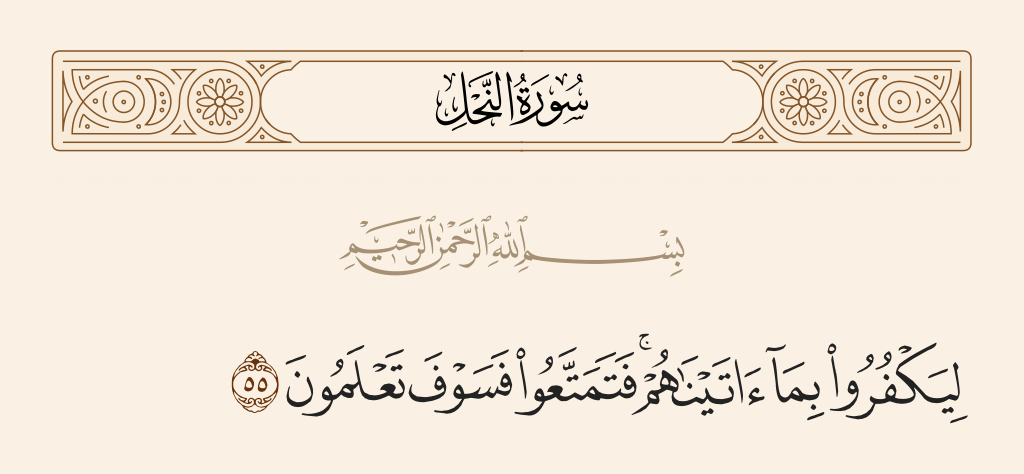 سُورَةُ النَّحْلِ
بِسْمِ ٱللَّهِ ٱلرَّحْمَٰنِ ٱلرَّحِيمِ
لِيَكْفُرُوا۟ بِمَآ ءَاتَيْنَٰهُمْ ۚ فَتَمَتَّعُوا۟ فَسَوْفَ تَعْلَمُونَ ٥٥